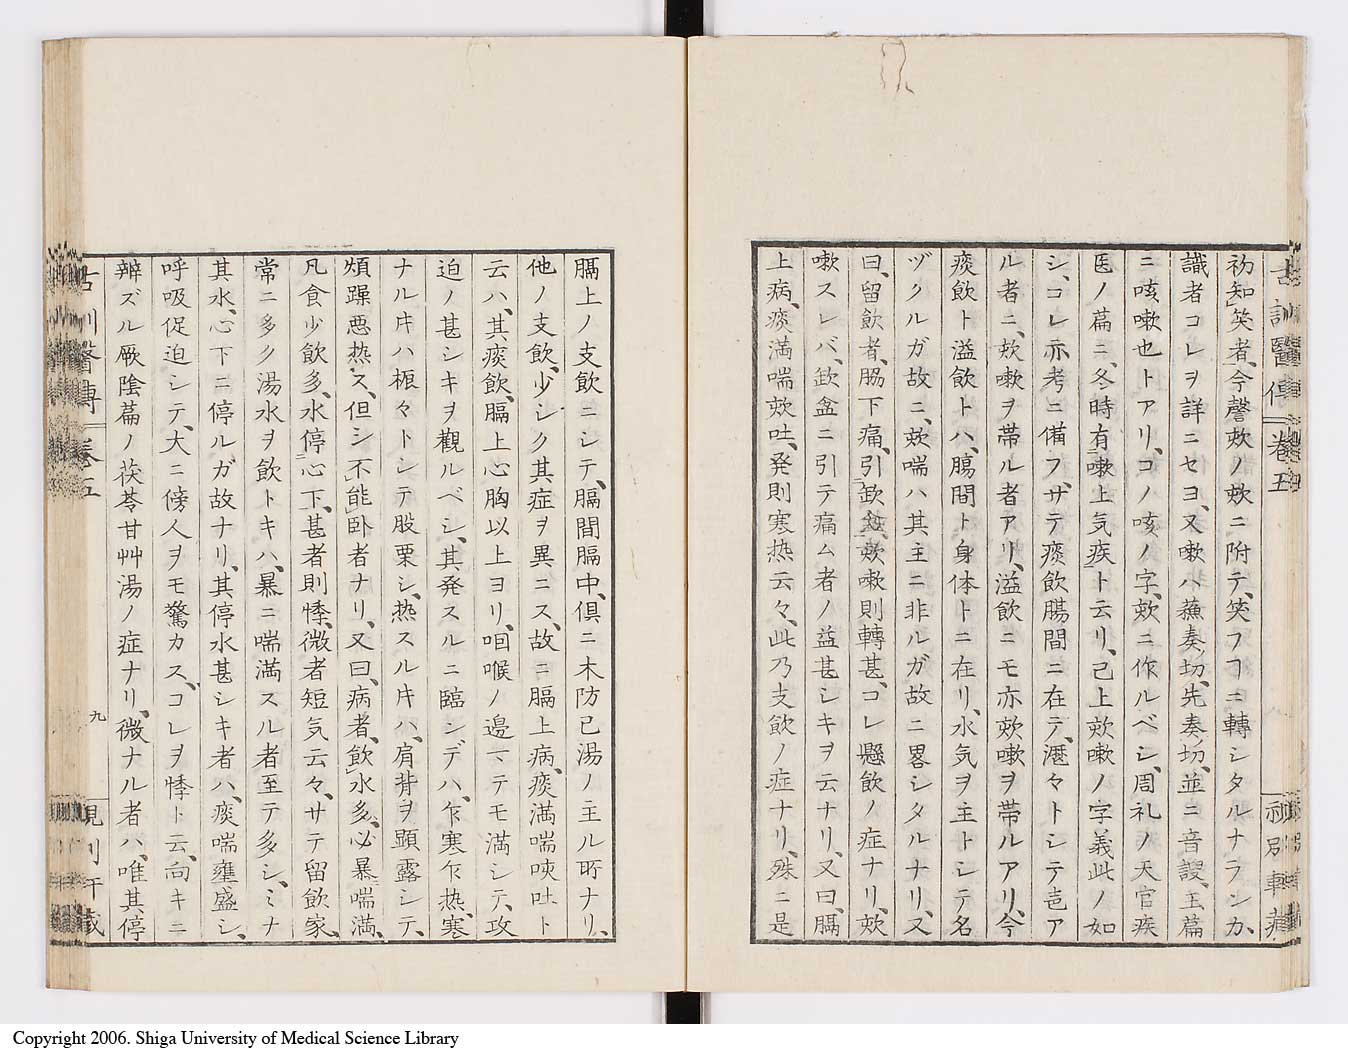 初知笑者、今謦欬ノ欬ニ附テ、笑フヿニ轉シタルナランカ、
識者コレヲ詳ニセヨ、又嗽ハ蘓奏切、先奏切、並ニ音謏、玉篇
ニ咳嗽也トアリ、コノ咳ノ字、欬ニ作ルベシ、周礼ノ天官疾
医ノ萹ニ、冬時有嗽上気疾ト云リ、已上欬嗽ノ字義此ノ如
シ、コレ亦考ニ備フ、サテ痰飲腸間ニ在テ、瀝々トシテ音ア
ル者ニ、欬嗽ヲ帯ル者アリ、溢飲ニモ亦欬嗽ヲ帯ルアリ、今
痰飲ト溢飲トハ、腸間ト身体トニ在リ、水気ヲ主トシテ名
ヅクルガ故ニ、欬喘ハ其主ニ非ルガ故ニ畧シタルナリ、又
曰、留飲者、脇下痛、引欽盆、欬嗽則轉甚、コレ懸飲ノ症ナリ、欬
嗽スレバ、欽盆ニ引テ痛ム者ノ益甚シキヲ云ナリ、又曰、膈
上病、痰満喘欬吐、発則寒热云々、此乃支飲ノ症ナリ、殊ニ是
古訓醫傳 卷五
膈上ノ支飲ニシテ、膈間膈中、倶ニ木防已湯ノ主ル所ナリ、
他ノ支飲、少シク其症ヲ異ニス、故ニ膈上病、痰満喘咳吐ト
云ハ、其痰飲、膈上心胸以上ヨリ、咽喉ノ邊マテモ満シテ、攻
迫ノ甚シキヲ觀ルベシ、其発スルニ臨ンデハ、乍寒乍热、寒
ナル片ハ振々トシテ股栗シ、热スル片ハ、肩背ヲ顕露シテ、
煩躁悪热ス、但シ不能卧者ナリ、又曰、病者、飲水多、必暴喘満、
凡食少飲多、水停心下、甚者則悸、微者短気云々、サテ留飲家、
常ニ多ク湯水ヲ飲トキハ、暴ニ喘満スル者至テ多シ、ミナ
其水、心下ニ停ルガ故ナリ、其停水甚シキ者ハ、痰喘壅盛シ、
呼吸促迫シテ、大ニ傍人ヲモ驚カス、コレヲ悸ト云、向キニ
辨ズル厥陰萹ノ茯苓甘艸湯ノ症ナリ、微ナル者ハ、唯其停
古訓醫傳 卷五
九
Copyright 2006. Shiga University of Medical Science Library